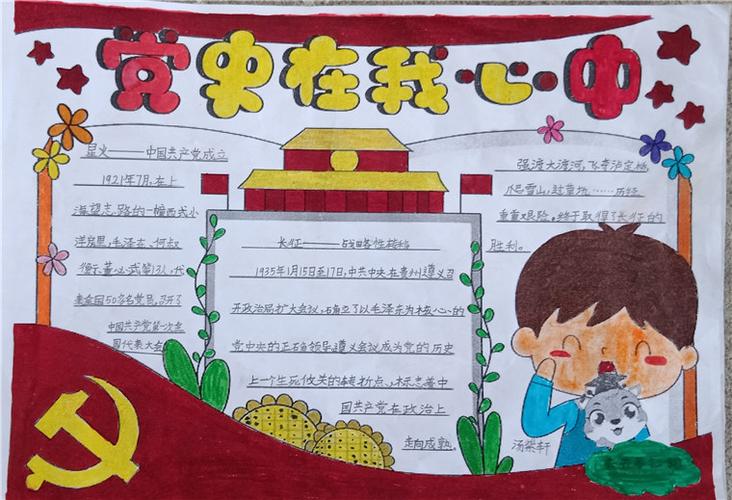 党史在我心中
星火——中国共产党成立
1921年7月,在上
海望志路的一幢西式小
洋房里,毛泽东、何叔
衡、董必武等13人,代
表全国50多名党员,召开了
中国共产党第一次全
国代表大会
长征——战略性转移
1935年1月15日至17日,中共中央在贵州遵义召
开政治局扩大会议,确立了以毛泽东为核心的
党中央的正确领导遵义会议成为党的历史
上一个生死攸关的转折点、标志着中
国共产党在政治上
走向成熟。
强渡大渡河,飞夺泸定桥,
爬雪山,过草地……历经
重重艰险,终于取得了长征的
胜利。
汤棨轩